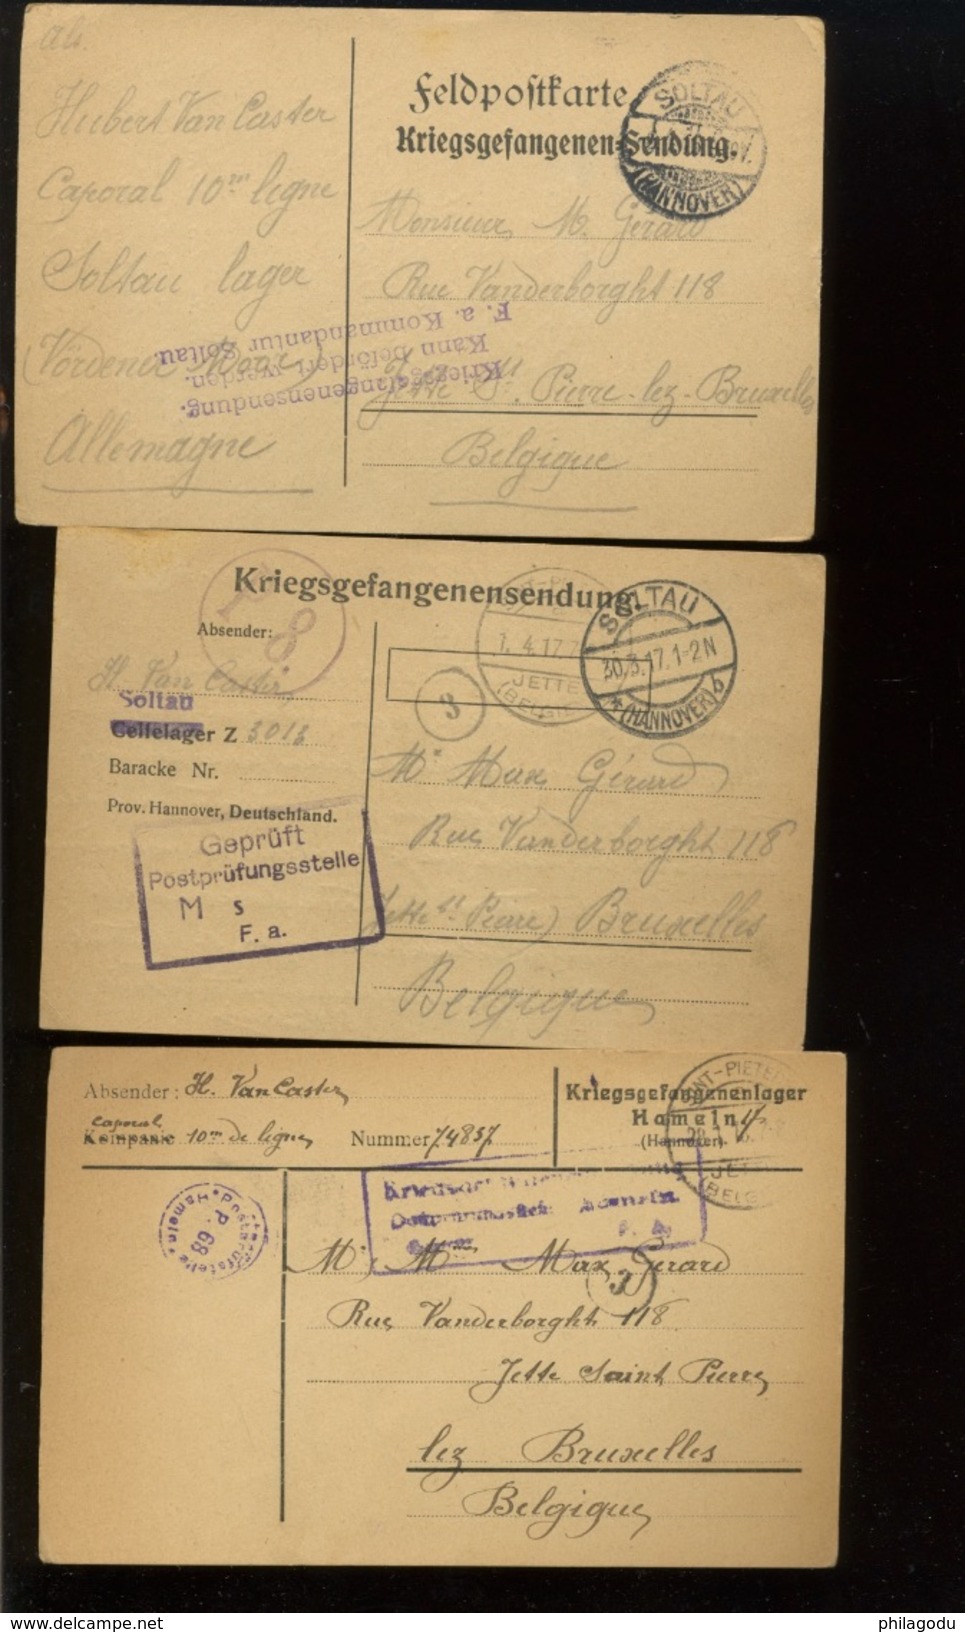 Als.
Hubert Van Caster
Caporal 10me ligne
Soltau lager
(Vördener Moor)
Allemagne
Feldpostkarte
Kriegsgefangenen-Sendung.
SOLTAU
(HANNOVER)
Monsieur M. Gérard
Rue Vanderborght 118
Jette St. Pierre-lez-Bruxelles
Belgique
Kriegsgefangenensendung.
Kann befördert werden.
F. a. Kommandantur Soltau.
Kriegsgefangenensendung.
Absender:
H. Van Caster
Soltau
Cellelager Z 3013
Baracke Nr.
Prov. Hannover, Deutschland.
Geprüft
Postprüfungsstelle
M s
F. a.
8
3
1. 4.17.7
JETTE
(BELGIE
SOLTAU
30.3.17.1-2N
*(HANNOVER) b
Mr Max Gérard
Rue Vanderborght 118
Jette St Pierre) Bruxelles
Belgique
Absender: H. Van Caster
Caporal
Kompanie 10me de ligne Nummer 74837
Kriegsgefangenenlager
Hameln
(Hannover)
SINT-PIETER
JETTE
(BELG
Hameln
P. 68
Mr M Max Gérard
3
Rue Vanderborght 118
Jette Saint Pierre
lez Bruxelles
Belgique
philagodu